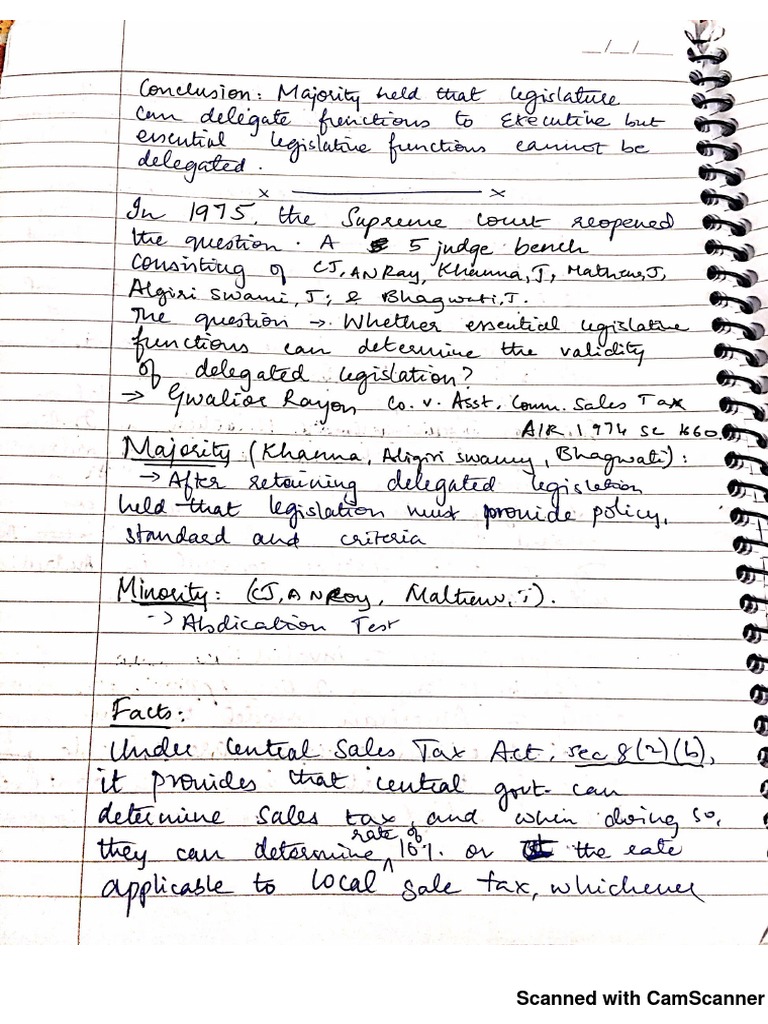 __/__/____
Conclusion: Majority held that legislature
can delegate functions to Executive but
essential legislative functions cannot be
delegated.
x ———— x
In 1975, the Supreme Court reopened
the question. A 5 judge bench
consisting of CJ, AN Ray, Khanna, J, Mathew, J,
Algiri Swami, J; & Bhagwati, J.
The question → Whether essential legislative
functions can determine the validity
of delegated legislation?
→ Gwalior Rayon Co. v. Asst. Comm. Sales Tax
AIR 1974 SC 1660.
Majority (Khanna, Aligiri swamy, Bhagwati):
→ After retaining delegated legislation
held that legislation must provide policy,
standard and criteria
Minority: (CJ, AN Roy, Mathew, J).
-> Abdication Test
Facts:
Under Central Sales Tax Act, sec 8(2)(b),
it provides that central govt. can
determine sales tax, and when doing so,
they can determine rate of 10%. or the rate
applicable to local sale tax, whichever
Scanned with CamScanner